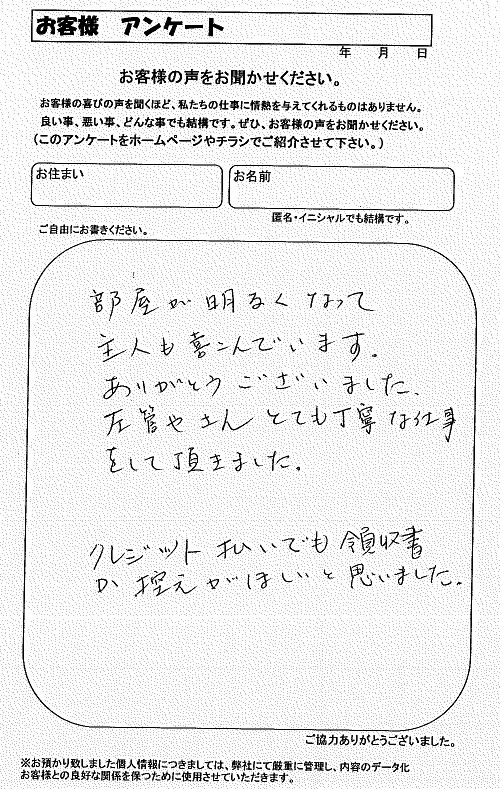 お客様 アンケート
年 月 日
お客様の声をお聞かせください。
お客様の喜びの声を聞くほど、私たちの仕事に情熱を与えてくれるものはありません。
良い事、悪い事、どんな事でも結構です。ぜひ、お客様の声をお聞かせください。
(このアンケートをホームページやチラシでご紹介させて下さい。)
お住まい
お名前
匿名・イニシャルでも結構です。
ご自由にお書きください。
部屋が明るくなって
主人も喜こんでいます。
ありがとうございました。
左管やさんとても丁寧な仕事
をして頂きました。
クレジット払いでも領収書
か控えがほしいと思いました。
ご協力ありがとうございました。
※お預かり致しました個人情報につきましては、弊社にて厳重に管理し、内容のデータ化
お客様との良好な関係を保つために使用させていただきます。